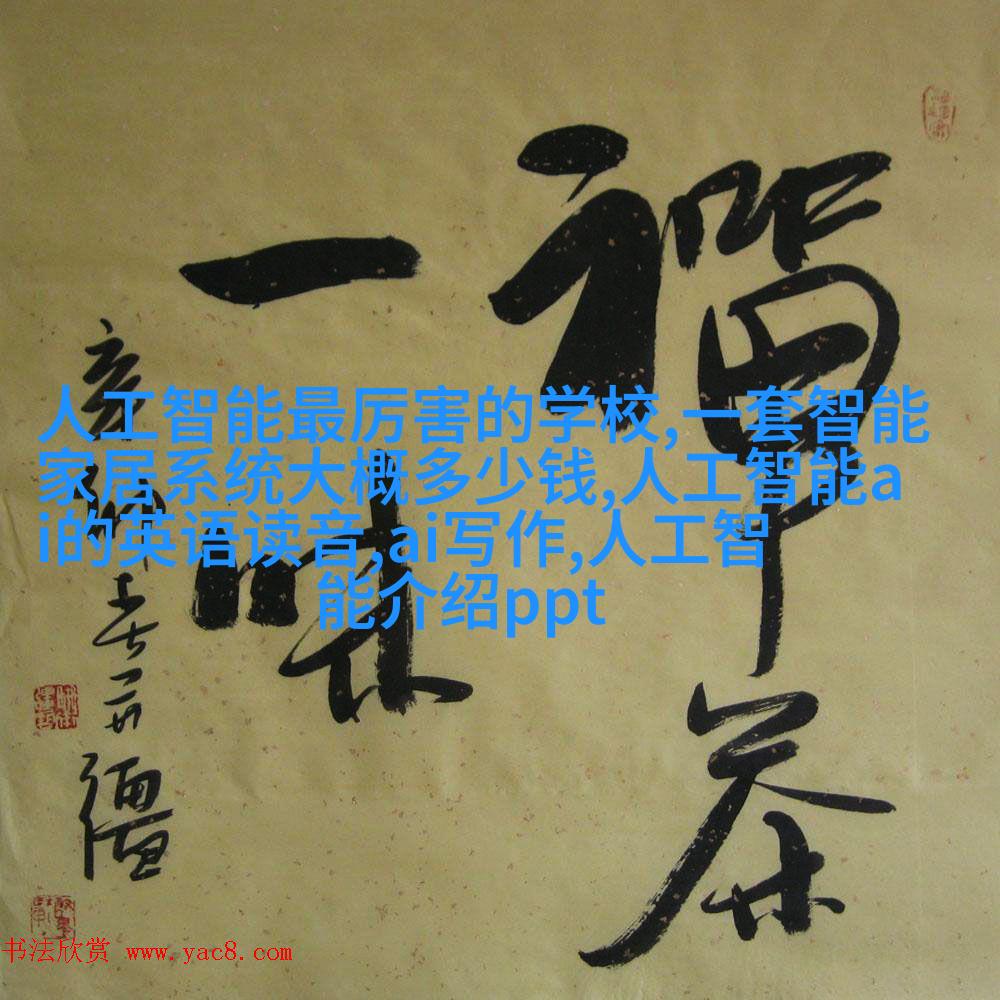 禅茶
一味
人工智能最厉害的学校,一套智能
家居系统大概多少钱,人工智能a
i的英语读音,ai写作,人工智
能介绍ppt
书法欣赏 www.yac8.com